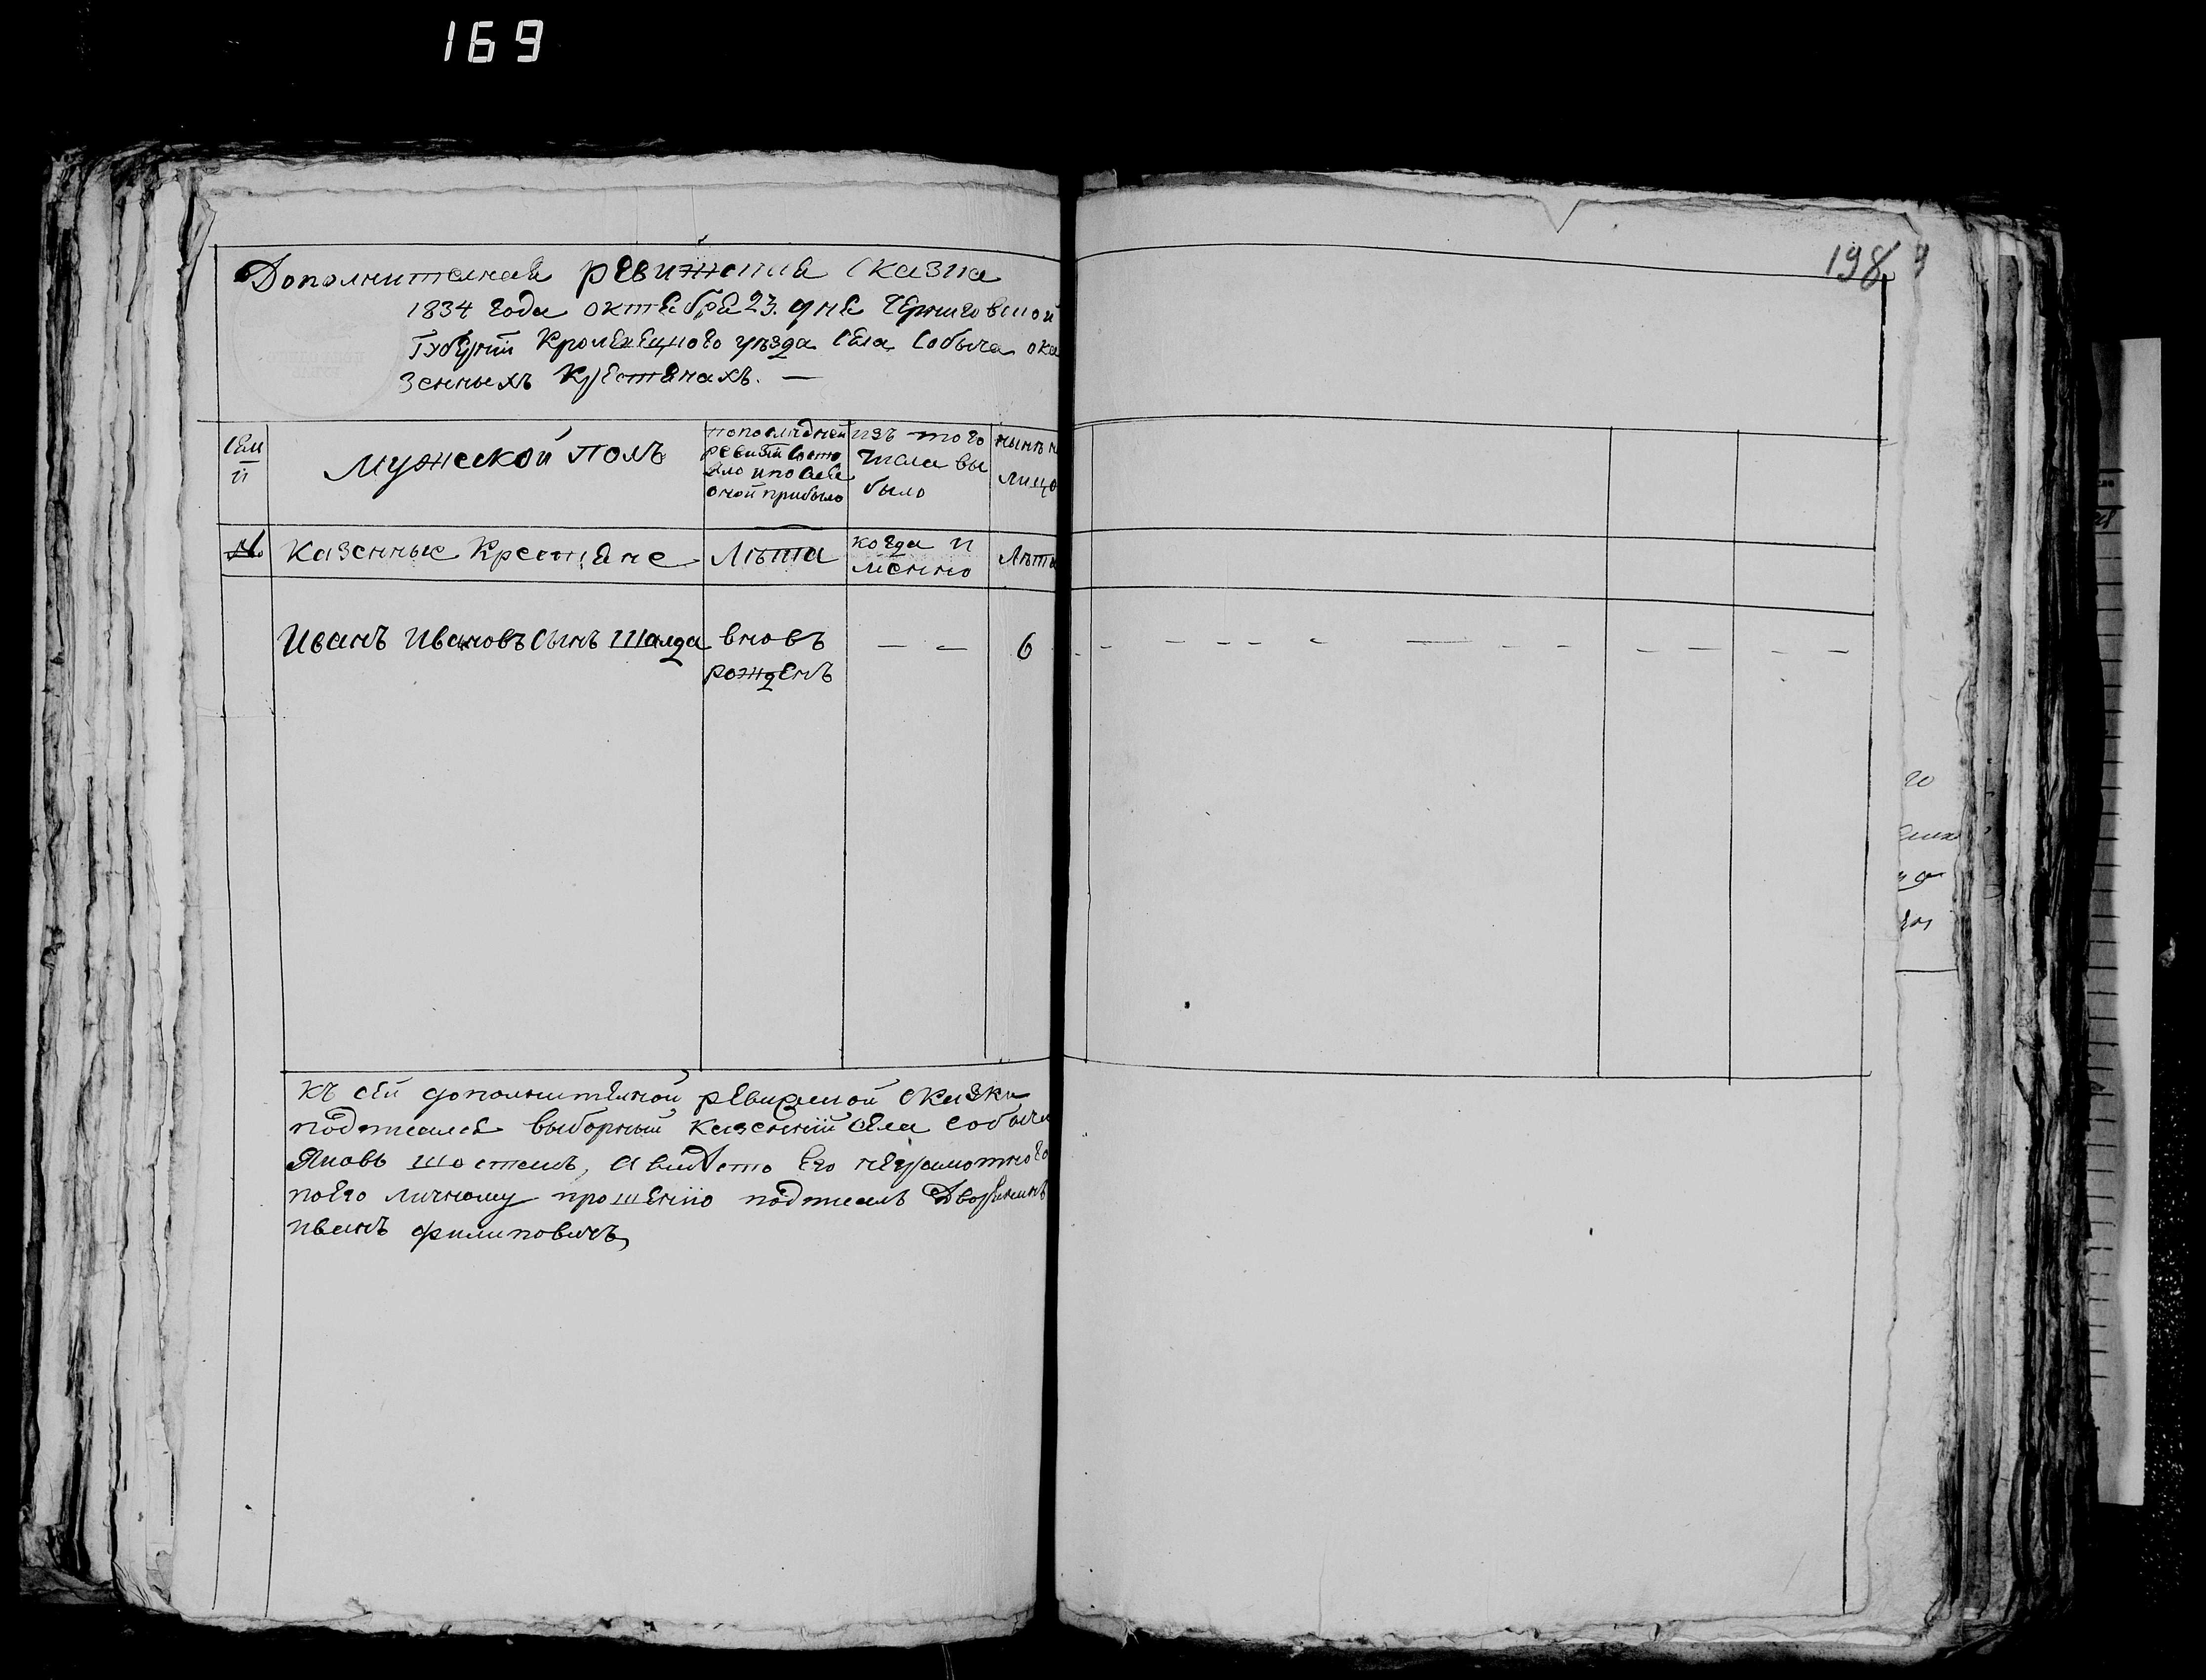 169
198 9
Дополнителная ревижская Сказка
1834 года октября 23. дня Черниговской
Губерній Кролевецкого уезда Села Собыча о ка
зенныхъ Крестянахъ. —
Сем
й
мужеской полъ
попоследней
ревизій состо
яло ипосле
оной прибыло
изъ того
числа вы
было
нынѣ н
лицо
№
Казенные Крестяне
Лѣта
когда и
мѣнно
Лѣта
Иванъ Ивановъ Сынъ Шалда вновъ — — 6
рожденъ
Къ сей дополнителной ревизкой сказки
подписался выборный Казенний села Собыча
Яковъ шостакъ, а вместо Его неграмотного
поего личному прошенію подписалъ Дворянинъ
иванъ филиповичъ,
го